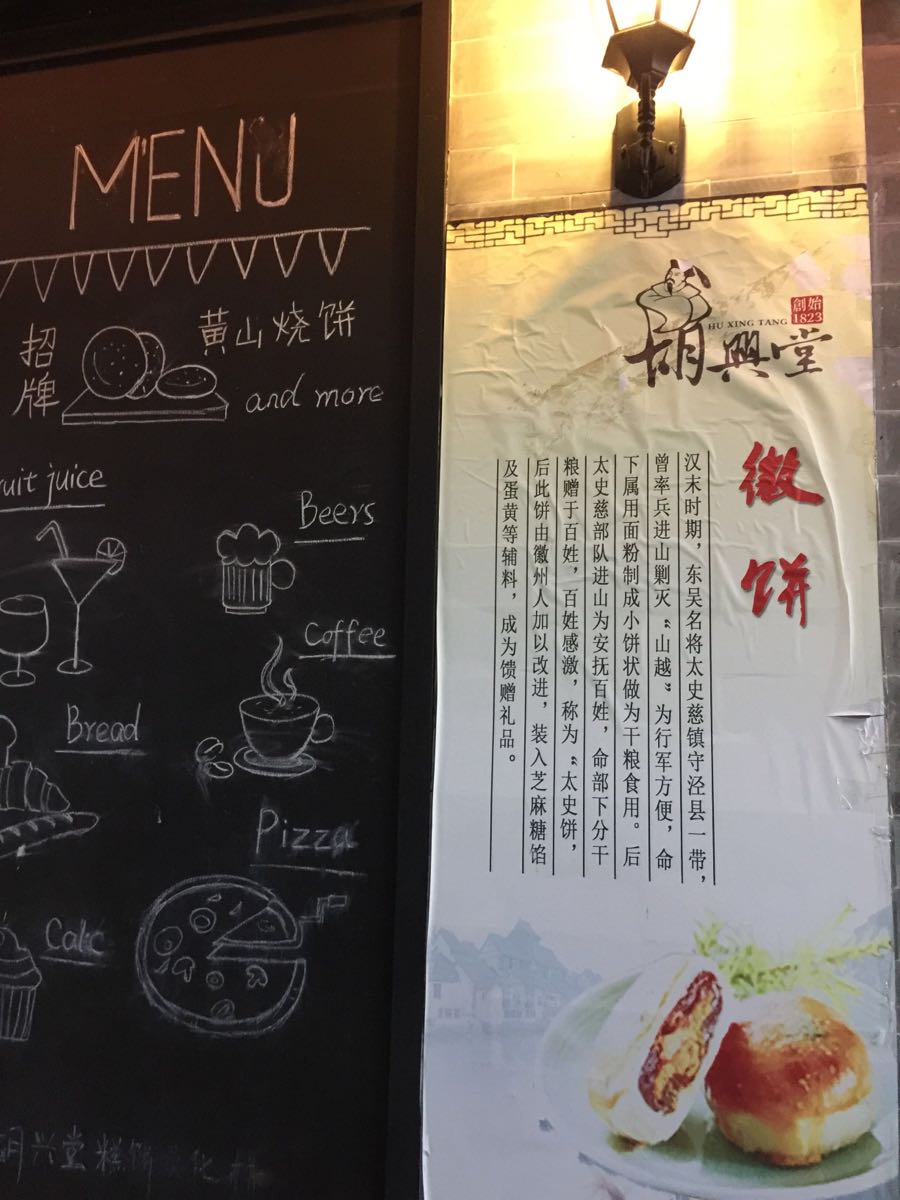 MENU
招牌
黄山烧饼
and more
ruit juice
Beers
Coffee
Bread
Pizza
Cake
胡兴堂糕饼
創始
1823
HU XING TANG
胡興堂
徽饼
汉末时期，东吴名将太史慈镇守泾县一带，
曾率兵进山剿灭“山越”为行军方便，命
下属用面粉制成小饼状做为干粮食用。后
太史慈部队进山为安抚百姓，命部下分干
粮赠于百姓，百姓感激，称为“太史饼，
后此饼由徽州人加以改进，装入芝麻糖馅
及蛋黄等辅料，成为馈赠礼品。